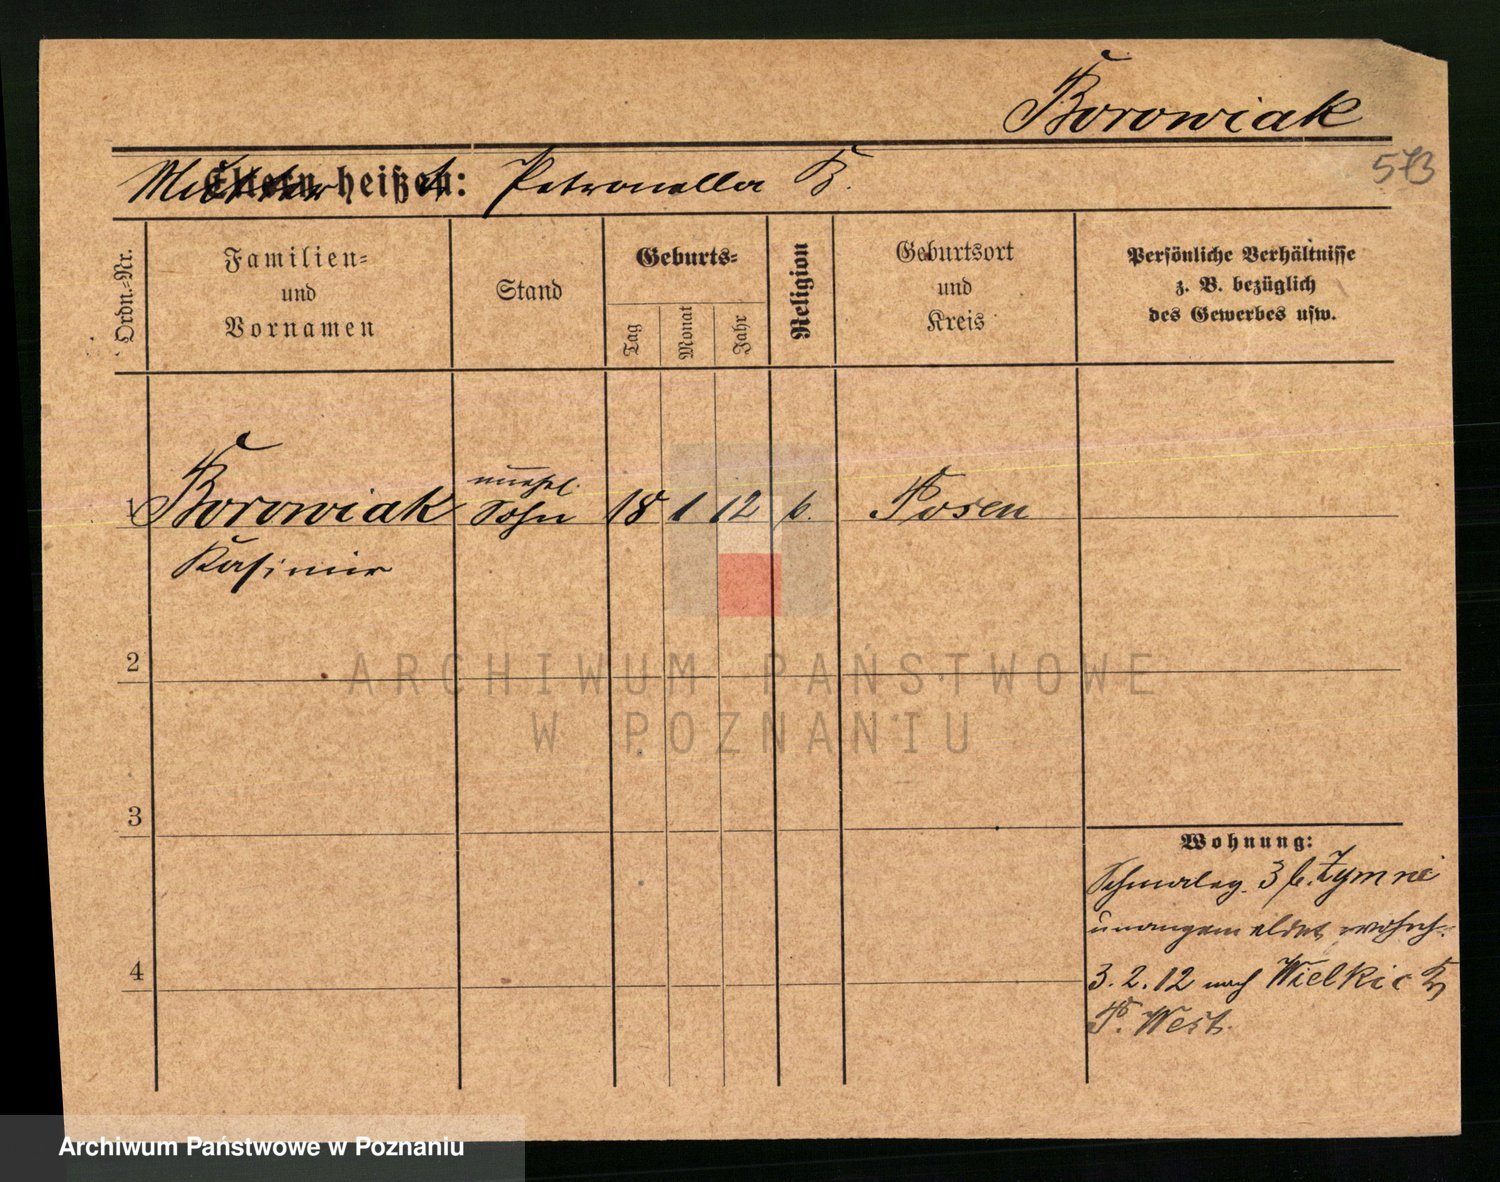 Borowiak
573
Mutter heißt: Petronella B.
Ordn.-Nr.
Familien-
und
Vornamen
Stand
Geburts-
Tag
Monat
Jahr
Religion
Geburtsort
und
Kreis
Persönliche Verhältnisse
z. B. bezüglich
des Gewerbes usw.
1 Borowiak unehel. Sohn 18 1 12 k. Posen
Kasimir
2
3
4
Wohnung:
3 b. Zymni
unangemeldet
3.2.12 nach Wielkie
P. West.
ARCHIWUM PAŃSTWOWE
W POZNANIU
Archiwum Państwowe w Poznaniu